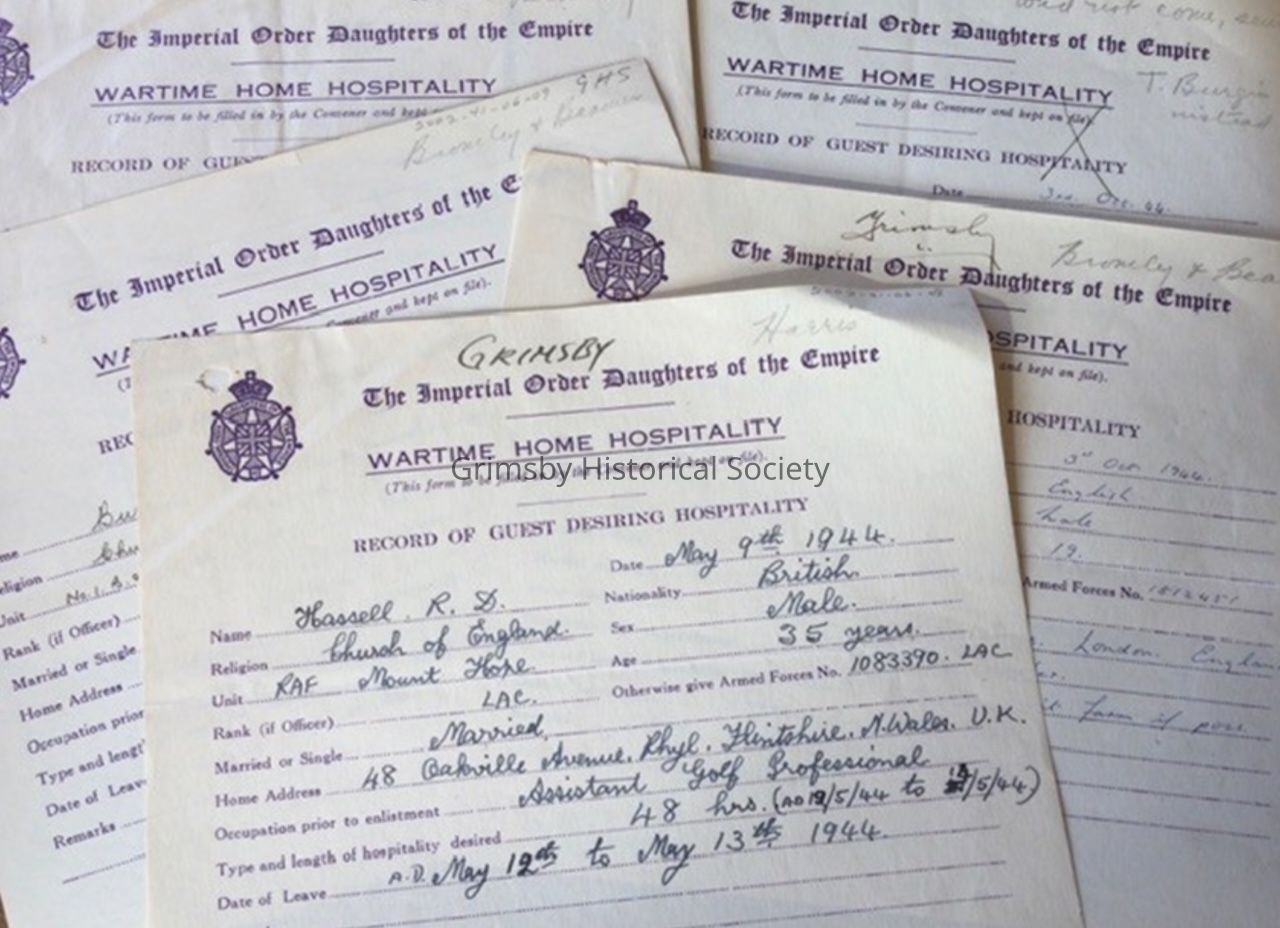 The Imperial Order Daughters of the Empire
WARTIME HOME HOSPITALITY
(This form to be filled in by the Convener and kept
RECORD OF GUEST
would not come,
The Imperial Order Daughters of the Empire
WARTIME HOME HOSPITALITY
(This form to be filled in by the Convener and kept on file).
T. Burgin
instead
RECORD OF GUEST DESIRING HOSPITALITY
Date Oct. 44.
GHS
Bromley &
The Imperial Order Daughters of the E
WARTIME HOME HOSPITALITY
Convener and kept on file).
REC
Name
Religion
Unit
Rank (if Officer)
Married or Single
Home Address
Occupation prior
Type and lengt
Date of Leav
Remarks
Grimsby
Bromley & Bea
The Imperial Order Daughters of the Empire
SPITALITY
and kept on file).
HOSPITALITY
3rd Oct. 1944.
English.
Male
19.
Armed Forces No.
London. Englan
farm if poss
Harris
GRIMSBY
The Imperial Order Daughters of the Empire
WARTIME HOME HOSPITALITY
(This form to be filled in by the Convener and kept on file).
Grimsby Historical Society
RECORD OF GUEST DESIRING HOSPITALITY
Date May 9th 1944.
Name Hassell. R. D. Nationality British.
Religion Church of England. Sex Male.
Unit RAF Mount Hope. Age 35 years.
Rank (if Officer) LAC. Otherwise give Armed Forces No. 1083390. LAC
Married or Single Married.
Home Address 48 Oakville Avenue. Rhyl. Flintshire. N. Wales. U.K.
Occupation prior to enlistment Assistant Golf Professional
Type and length of hospitality desired 48 hrs. (AD 12/5/44 to /5/44)
Date of Leave A.D. May 12th to May 13th 1944.